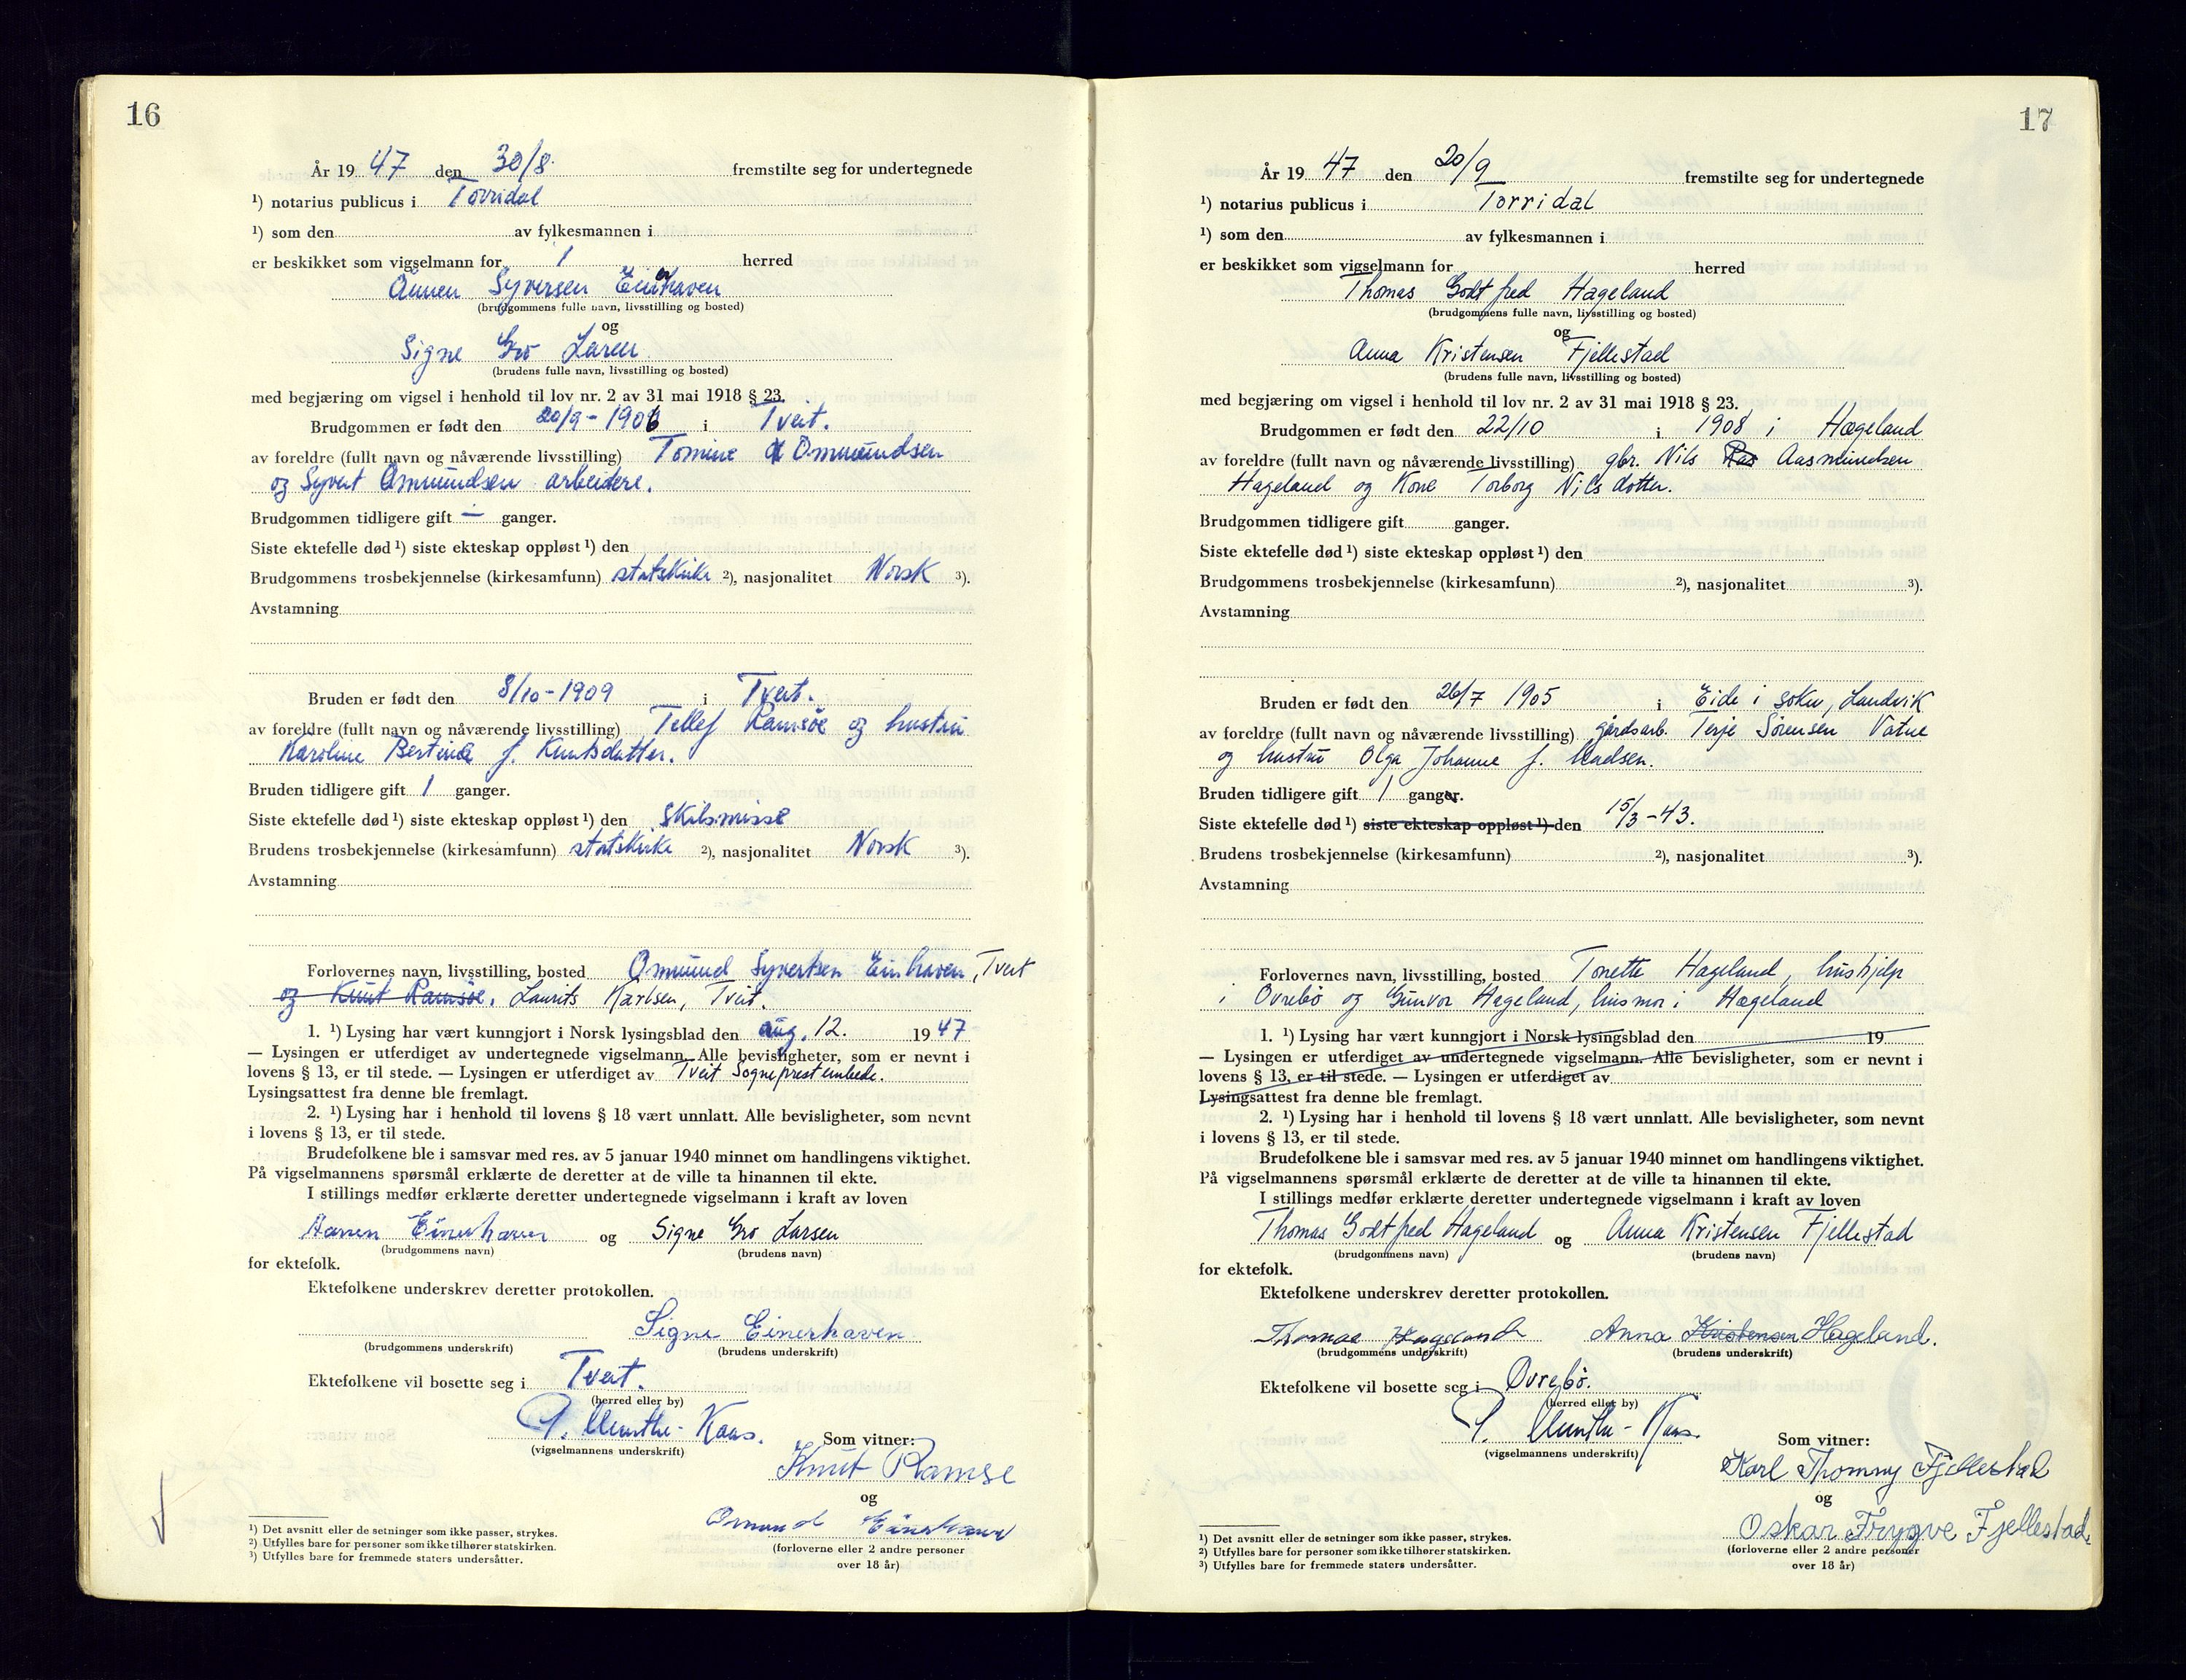 16
År 19 47 den 30/8. fremstilte seg for undertegnede
¹) notarius publicus i Torridal
¹) som den av fylkesmannen i
er beskikket som vigselmann for 1 herred
Ånnen Syversen Einerhaven
(brudgommens fulle navn, livsstilling og bosted)
og
Signe Gro Larsen
(brudens fulle navn, livsstilling og bosted)
med begjæring om vigsel i henhold til lov nr. 2 av 31 mai 1918 § 23.
Brudgommen er født den 20/9 - 1906 i Tveit.
av foreldre (fullt navn og nåværende livsstilling) Tomine Ommundsen
og Syvert Omundsen arbeidere.
Brudgommen tidligere gift — ganger.
Siste ektefelle død ¹) siste ekteskap oppløst ¹) den
Brudgommens trosbekjennelse (kirkesamfunn) statskirke ²), nasjonalitet Norsk ³).
Avstamning
Bruden er født den 8/10 - 1909 i Tveit.
av foreldre (fullt navn og nåværende livsstilling) Tellef Ramsøe og hustru
Karoline Bertine f. Knutsdatter.
Bruden tidligere gift 1 ganger.
Siste ektefelle død ¹) siste ekteskap oppløst ¹) den skilsmisse
Brudens trosbekjennelse (kirkesamfunn) statskirke ²), nasjonalitet Norsk ³).
Avstamning
Forlovernes navn, livsstilling, bosted Omund Syvertsen Einhaven, Tveit
og Knut Ramsøe, Laurits Karlsen, Tveit.
1. ¹) Lysing har vært kunngjort i Norsk lysingsblad den aug. 12. 19 47
— Lysingen er utferdiget av undertegnede vigselmann. Alle bevisligheter, som er nevnt i
lovens § 13, er til stede. — Lysingen er utferdiget av Tveit Sogneprestembede.
Lysingsattest fra denne ble fremlagt.
2. ¹) Lysing har i henhold til lovens § 18 vært unnlatt. Alle bevisligheter, som nevnt
i lovens § 13, er til stede.
Brudefolkene ble i samsvar med res. av 5 januar 1940 minnet om handlingens viktighet.
På vigselmannens spørsmål erklærte de deretter at de ville ta hinannen til ekte.
I stillings medfør erklærte deretter undertegnede vigselmann i kraft av loven
Aanen Einerhaven og Signe Gro Larsen
(brudgommens navn) (brudens navn)
for ektefolk.
Ektefolkene underskrev deretter protokollen.
Signe Einerhaven
(brudgommens underskrift) (brudens underskrift)
Ektefolkene vil bosette seg i Tveit.
(herred eller by)
P. Munthe-Kaas.
(vigselmannens underskrift)
Som vitner:
Knut Ramse
og
Omund Einerhaven
(forloverne eller 2 andre personer
over 18 år)
¹) Det avsnitt eller de setninger som ikke passer, strykes.
²) Utfylles bare for personer som ikke tilhører statskirken.
³) Utfylles bare for fremmede staters undersåtter.
17
År 19 47 den 20/9 fremstilte seg for undertegnede
¹) notarius publicus i Torridal
¹) som den av fylkesmannen i
er beskikket som vigselmann for herred
Thomas Godtfred Hageland
(brudgommens fulle navn, livsstilling og bosted)
og
Anna Kristensen Fjellestad
(brudens fulle navn, livsstilling og bosted)
med begjæring om vigsel i henhold til lov nr. 2 av 31 mai 1918 § 23.
Brudgommen er født den 22/10 i 1908 i Hægeland
av foreldre (fullt navn og nåværende livsstilling) gbr. Nils Ras Aasmundsen
Hageland og Kone Torborg Nilsdotter.
Brudgommen tidligere gift ganger.
Siste ektefelle død ¹) siste ekteskap oppløst ¹) den
Brudgommens trosbekjennelse (kirkesamfunn) ²), nasjonalitet ³).
Avstamning
Bruden er født den 26/7 1905 i Eide i sokn, Landvik
av foreldre (fullt navn og nåværende livsstilling) gårdsarb. Terje Sørensen Vatne
og hustru Olga Johanne f. Madsen.
Bruden tidligere gift 1 ganger.
Siste ektefelle død ¹) siste ekteskap oppløst ¹) den 15/3 - 43.
Brudens trosbekjennelse (kirkesamfunn) ²), nasjonalitet ³).
Avstamning
Forlovernes navn, livsstilling, bosted Tonette Hageland, hushjelp
i Øvrebø og Gunvor Hageland, husmor i Hægeland
1. ¹) Lysing har vært kunngjort i Norsk lysingsblad den 19
— Lysingen er utferdiget av undertegnede vigselmann. Alle bevisligheter, som er nevnt i
lovens § 13, er til stede. — Lysingen er utferdiget av
Lysingsattest fra denne ble fremlagt.
2. ¹) Lysing har i henhold til lovens § 18 vært unnlatt. Alle bevisligheter, som nevnt
i lovens § 13, er til stede.
Brudefolkene ble i samsvar med res. av 5 januar 1940 minnet om handlingens viktighet.
På vigselmannens spørsmål erklærte de deretter at de ville ta hinannen til ekte.
I stillings medfør erklærte deretter undertegnede vigselmann i kraft av loven
Thomas Godtfred Hageland og Anna Kristensen Fjellestad
(brudgommens navn) (brudens navn)
for ektefolk.
Ektefolkene underskrev deretter protokollen.
Thomas Hageland Anna Kristensen Hageland.
(brudgommens underskrift) (brudens underskrift)
Ektefolkene vil bosette seg i Øvrebø.
(herred eller by)
P. Munthe-Kaas.
(vigselmannens underskrift)
Som vitner:
Karl Thommy Fjellestad
og
Oskar Trygve Fjellestad
(forloverne eller 2 andre personer
over 18 år)
¹) Det avsnitt eller de setninger som ikke passer, strykes.
²) Utfylles bare for personer som ikke tilhører statskirken.
³) Utfylles bare for fremmede staters undersåtter.